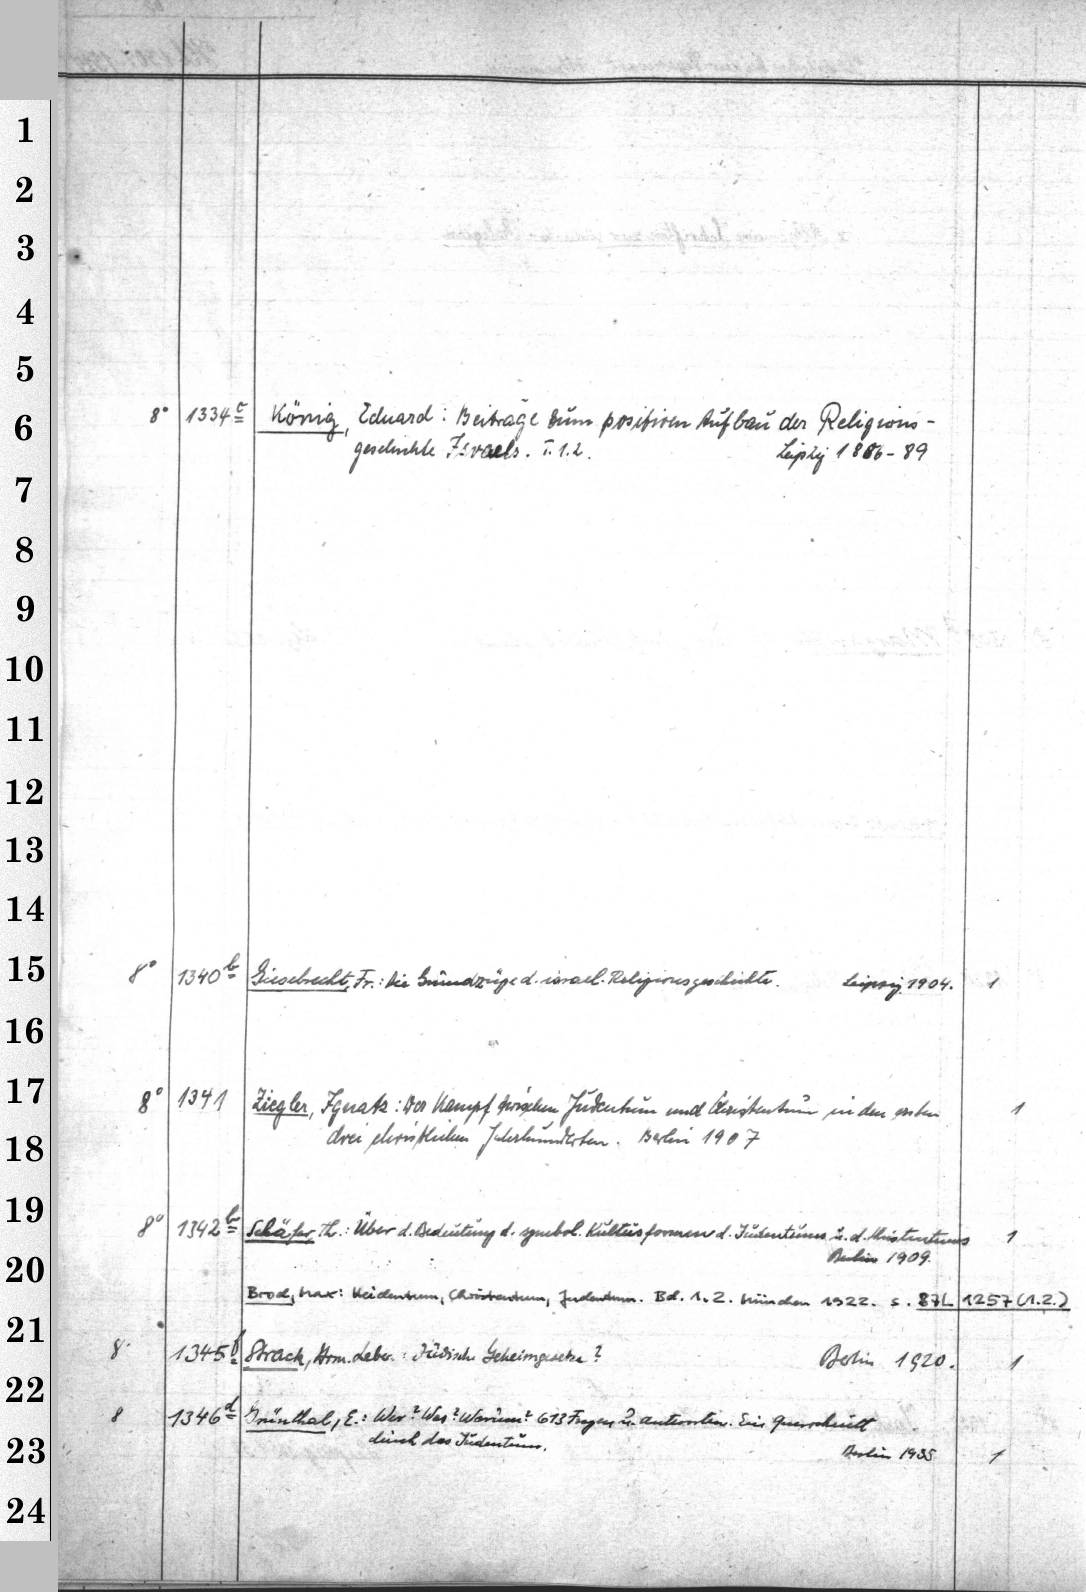 1
2
3
4
5
6
7
8
9
10
11
12
13
14
15
16
17
18
19
20
21
22
23
24
8° 1334 c König, Eduard: Beiträge zum positiven Aufbau der Religions-
geschichte Israels. T. 1.2. Leipzig 1886-89
8° 1340 b Giesebrecht, Fr.: Die Grundzüge d. israel. Religionsgeschichte. Leipzig 1904. 1
8° 1341 Ziegler, Ignatz: Der Kampf zwischen Judentum und Christentum in den ersten 1
drei christlichen Jahrhunderten. Berlin 1907
8° 1342 b Schäfer, Th.: Über d. Bedeutung d. symbol. Kultusformen d. Judentums u. d. Christentums 1
Berlin 1909.
Brod, Max: Heidentum, Christentum, Judentum. Bd. 1.2. München 1922. s. 87L 1257 (1.2.)
8° 1345 f Strack, Herm. Leber.: Jüdische Geheimgesetze? Berlin 1920. 1
8 1346 d Grünthal, E.: Wer? Was? Warum? 613 Fragen u. Antworten. Ein Querschnitt
durch das Judentum. Berlin 1935 1